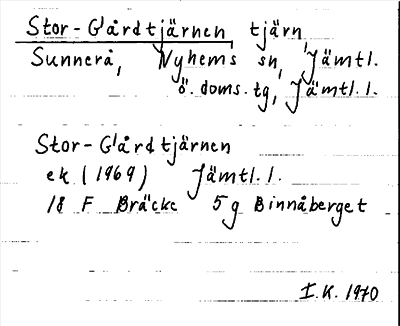 Stor-Gårdtjärnen tjärn
Sunnerå, Nyhems sn, Jämtl.
ö. doms. tg, Jämtl. l.
Stor-Gårdtjärnen
ek (1969) Jämtl. l.
18 F Bräcke 5g Binnåberget
I.K. 1970